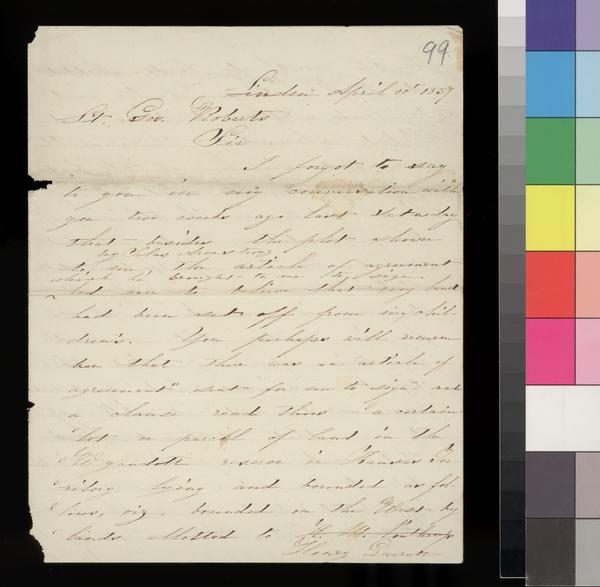 99
Linden April 20th 1859
Lt. Gov. Roberts
Sir
I forgot to say
to you in my conversation with
you two weeks ago last Saturday
that besides the plot shown
by Silas Armstrong
to me the article of agreement
which he brought to me to sign.
led me to believe that my land
had been set off from my chil-
dren's. You perhaps will remem
ber that there was an article of
agreement" sent for me to sign and
a clause read thus "a certain
"lot or parcel of land in the
"Wyandott reserve in Kansas Ter-
"ritory lying and bounded as fol
"lows, viz. bounded on the West by
lands allotted to H. M. Northrup
Henry Garrett